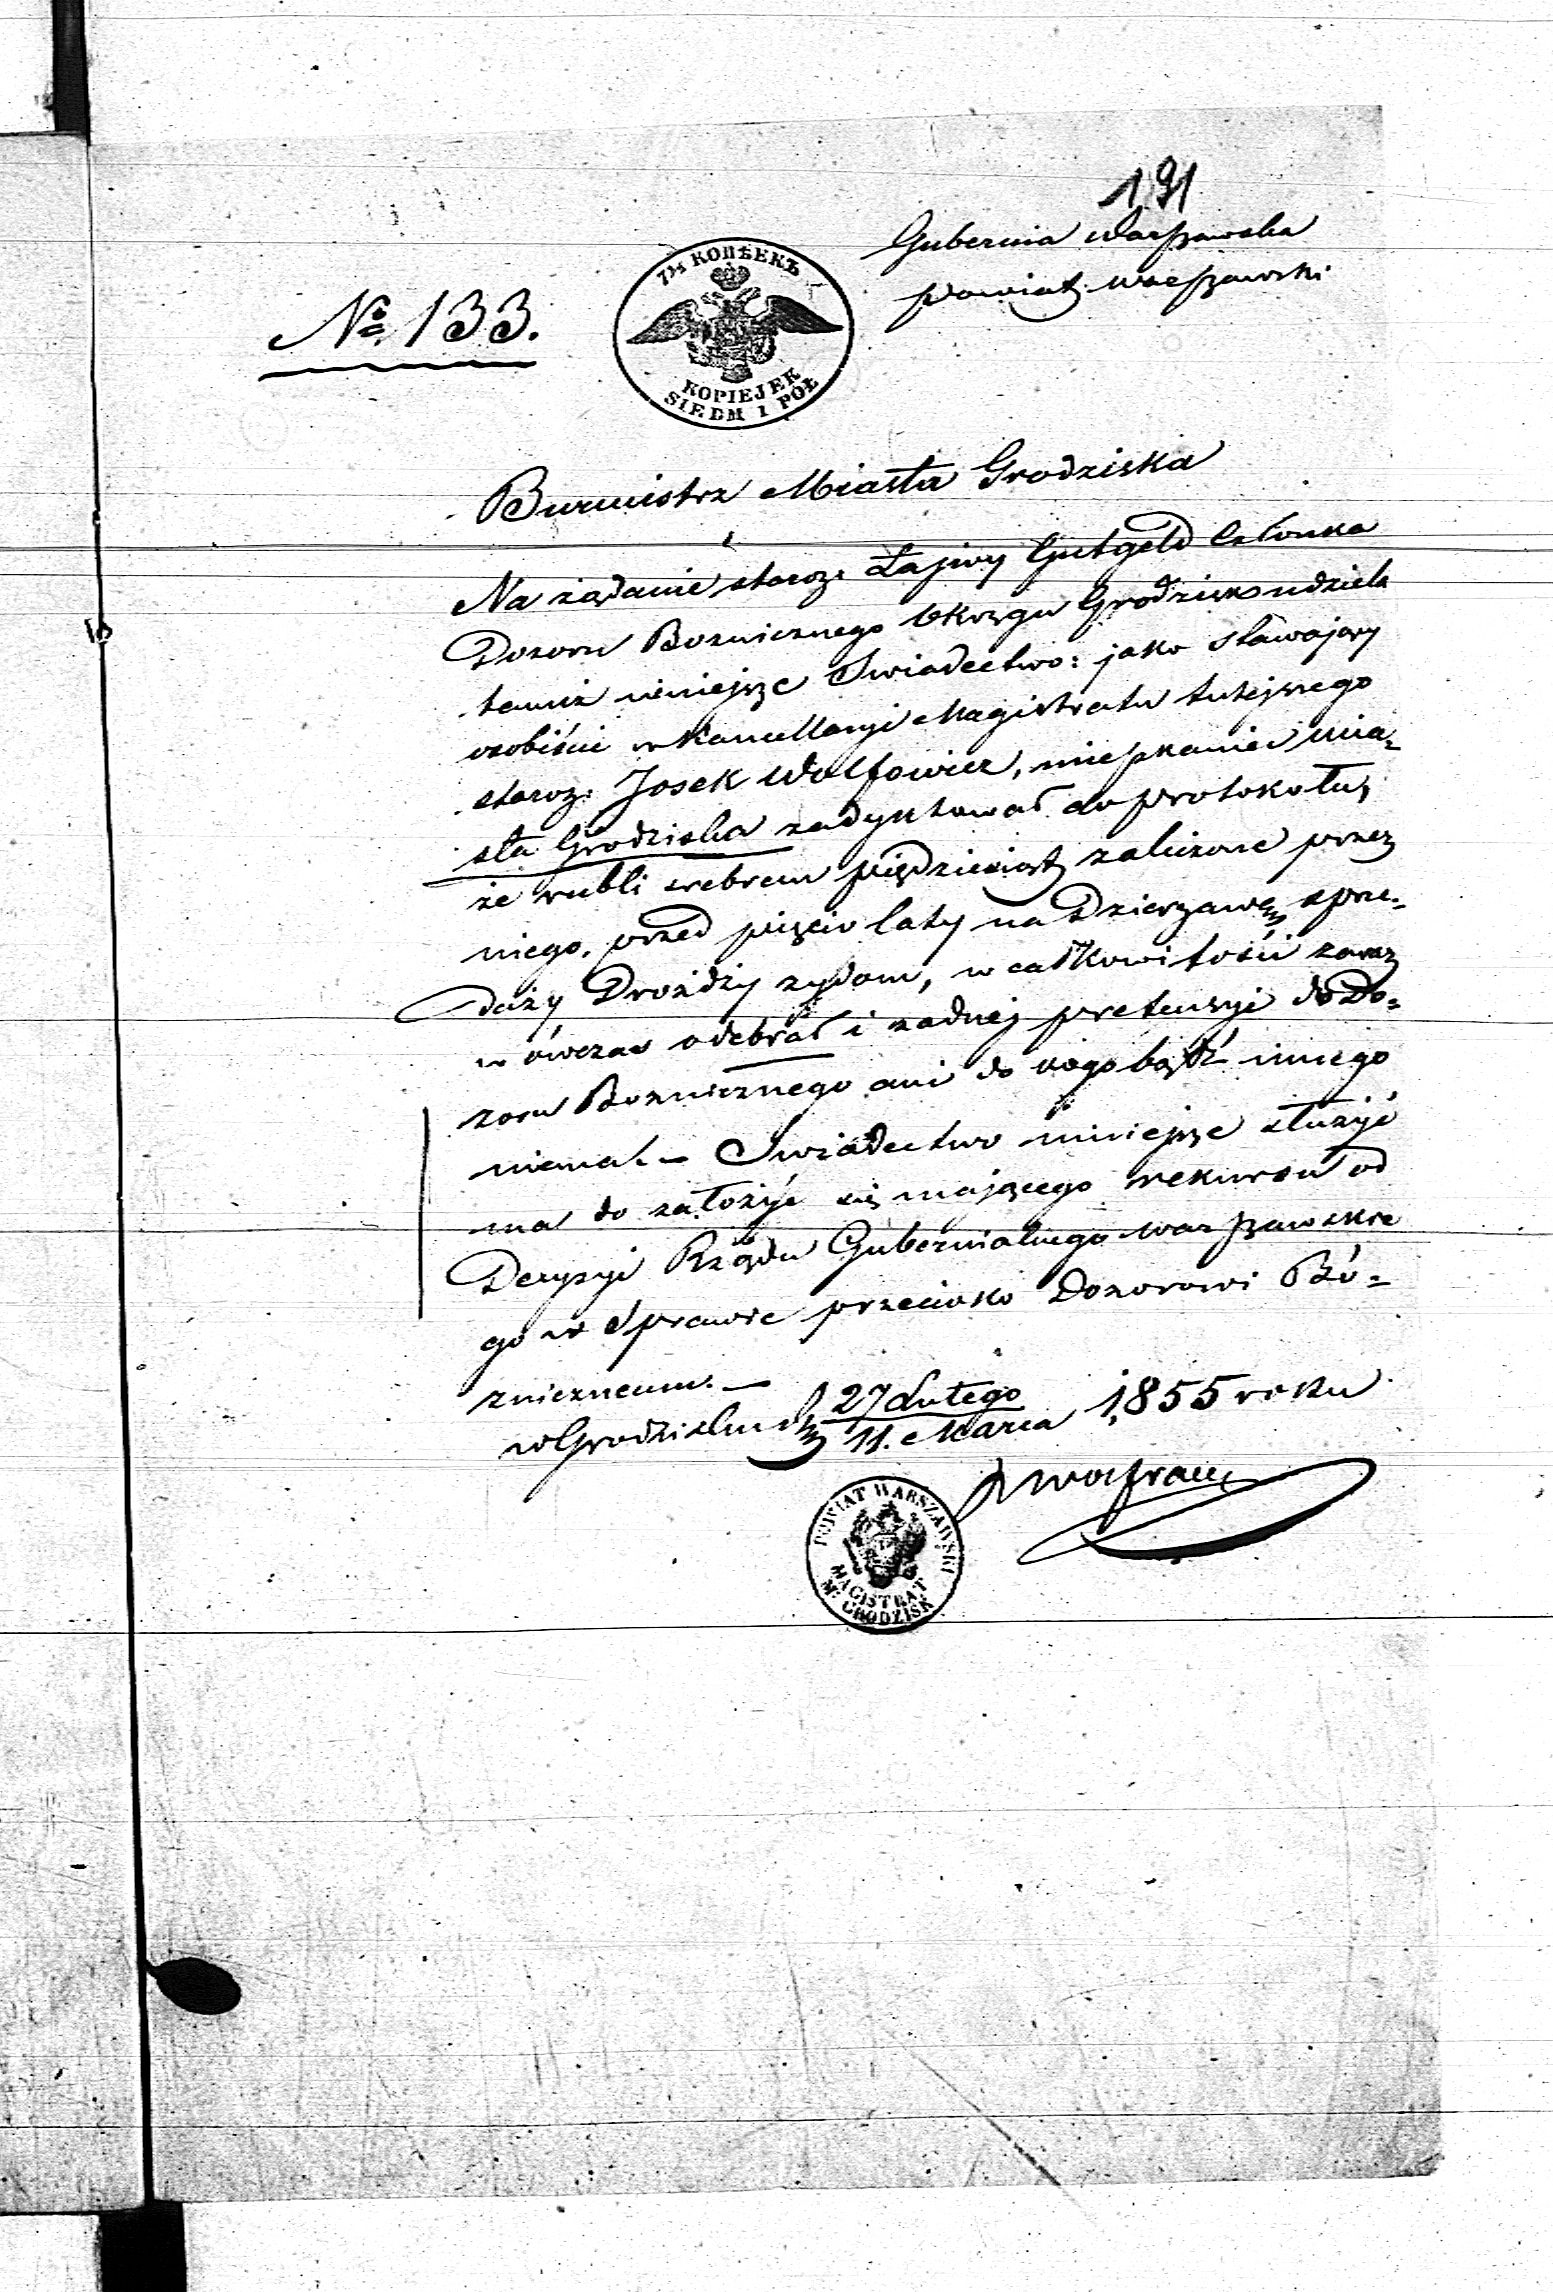 191
Gubernia Warszawska
Powiat Warszawski
№ 133.
7½ КОПѢЕКЪ
KOPIEJEK
SIEDM I PÓŁ
Burmistrz Miasta Grodziska
Na żądanie staroz. Łajwy Gutgeld Członka
Dozoru Boznicznego Okręgu Grodzisko udziela
temuż niniejsze Swiadectwo: jako stawający
osobiście w Kancellaryi Magistratu tutejszego
staroz. Josek Wolfowicz, mieszkaniec mia=
sta Grodziska zadyktował do protokołu,
że rubli srebrem pięćdziesiąt zaliczone przez
niego, przed pięcio laty na Dzierzawę sprze=
daży Drożdży zydom, w całkowitości zaraz
w ówczas odebrał i zadnej pretensyi do Do=
zoru Boznicznego ani do kogo bądź innego
niema. – Swiadectwo niniejsze służyć
ma do założyć się mającego rekursu od
Decyzyi Rządu Gubernialnego Warszawskie
go w Sprawie przeciwko Dozorowi Bó=
zniczneum. –
w Grodzisku d. 27 Lutego
11. Marca 1855 roku
POWIAT WARSZAWSKI
MAGISTRAT
M. GRODZISK